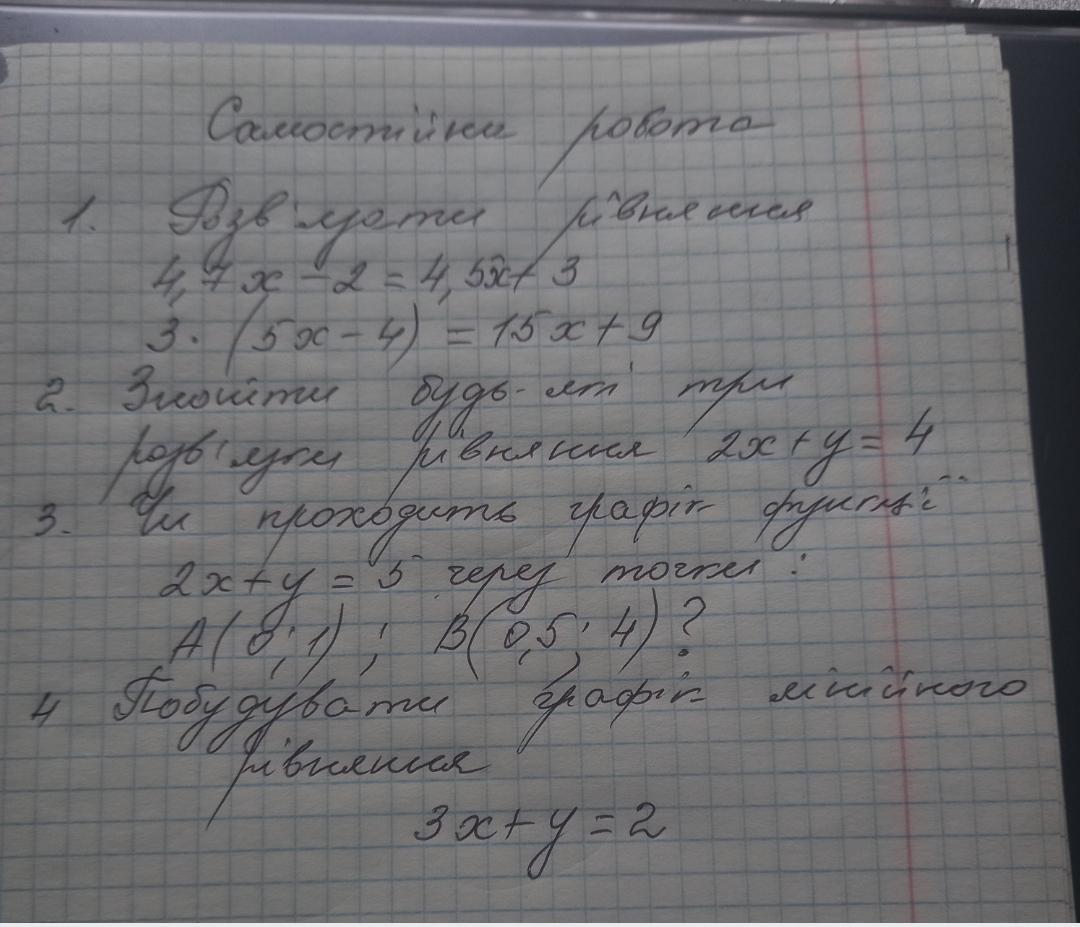 Самостійна робота
1. Розв'язати рівняння
4,7x - 2 = 4,5x + 3
3 · (5x - 4) = 15x + 9
2. Знайти будь-які три
розв'язки рівняння 2x + y = 4
3. Чи проходить графік функції
2x + y = 5 через точки :
A(0; 1) ; B(0,5; 4) ?
4 Побудувати графік лінійного
рівняння
3x + y = 2